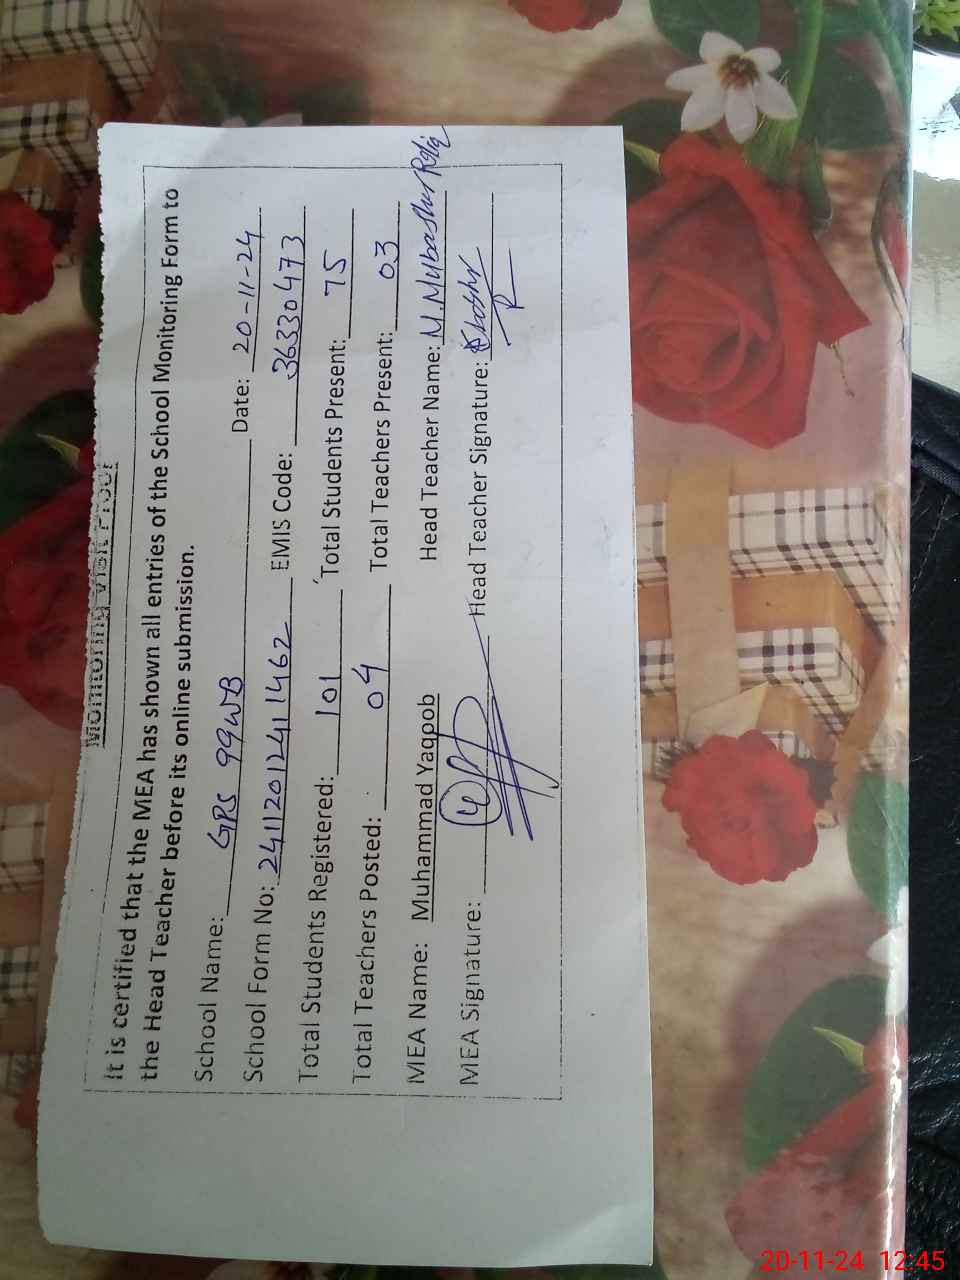 Monitoring Visit Proof
It is certified that the MEA has shown all entries of the School Monitoring Form to
the Head Teacher before its online submission.
School Name: GPS 99WB Date: 20-11-24
School Form No: 241120124111462 EMIS Code: 36330473
Total Students Registered: 101 Total Students Present: 75
Total Teachers Posted: 04 Total Teachers Present: 03
MEA Name: Muhammad Yaqoob Head Teacher Name: M. Mubashar
MEA Signature: Head Teacher Signature:
20-11-24 12:45